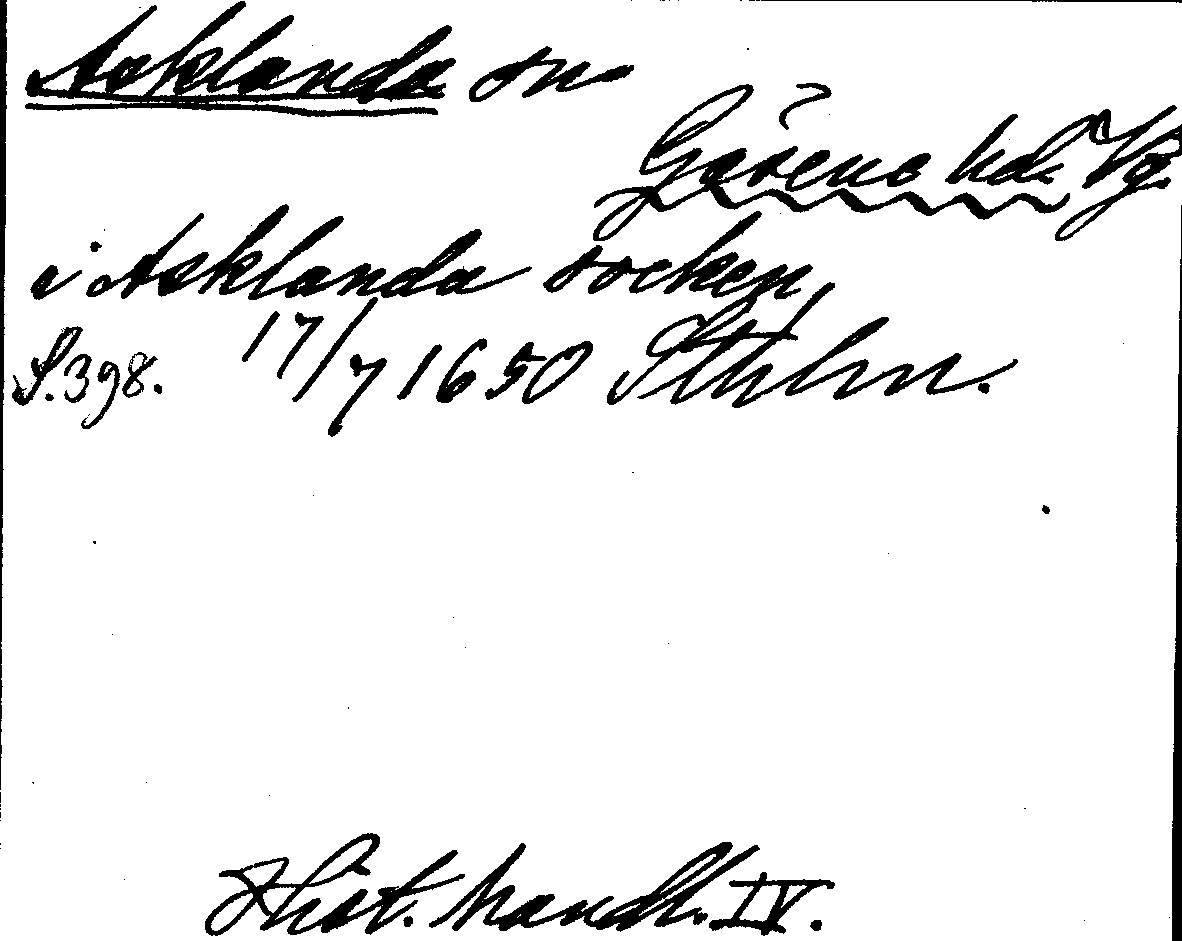 Asklanda sn
Gäsene hd. Vg.
i Asklanda socken,
S. 398. 17/7 1650 Sthlm.
Hist. handl. IV.